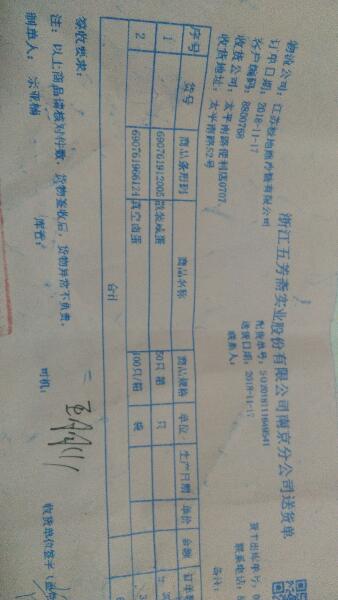 浙江五芳斋实业股份有限公司南京分公司送货单
物流公司：江苏极地熊冷链有限公司
订单日期：2018-11-17
客户编码：8800768
收货公司：太平南路便利店0707
收货地址：太平南路52号
配货单号：SO20181118049541
送货日期：2018-11-17
联系人：
备注：
序号 货号 商品条形码 商品名称 商品规格 单位 生产日期 单价 金额 订单数
1 690761912005 散装咸蛋 50只/箱 只
2 6907619061 24 真空卤蛋 100只/箱 袋
合计
签收要求：
注：以上商品请核对件数，货物签收后，货物异常不负责。
制单人：宗亚楠 库管： 司机： 收货单位签字